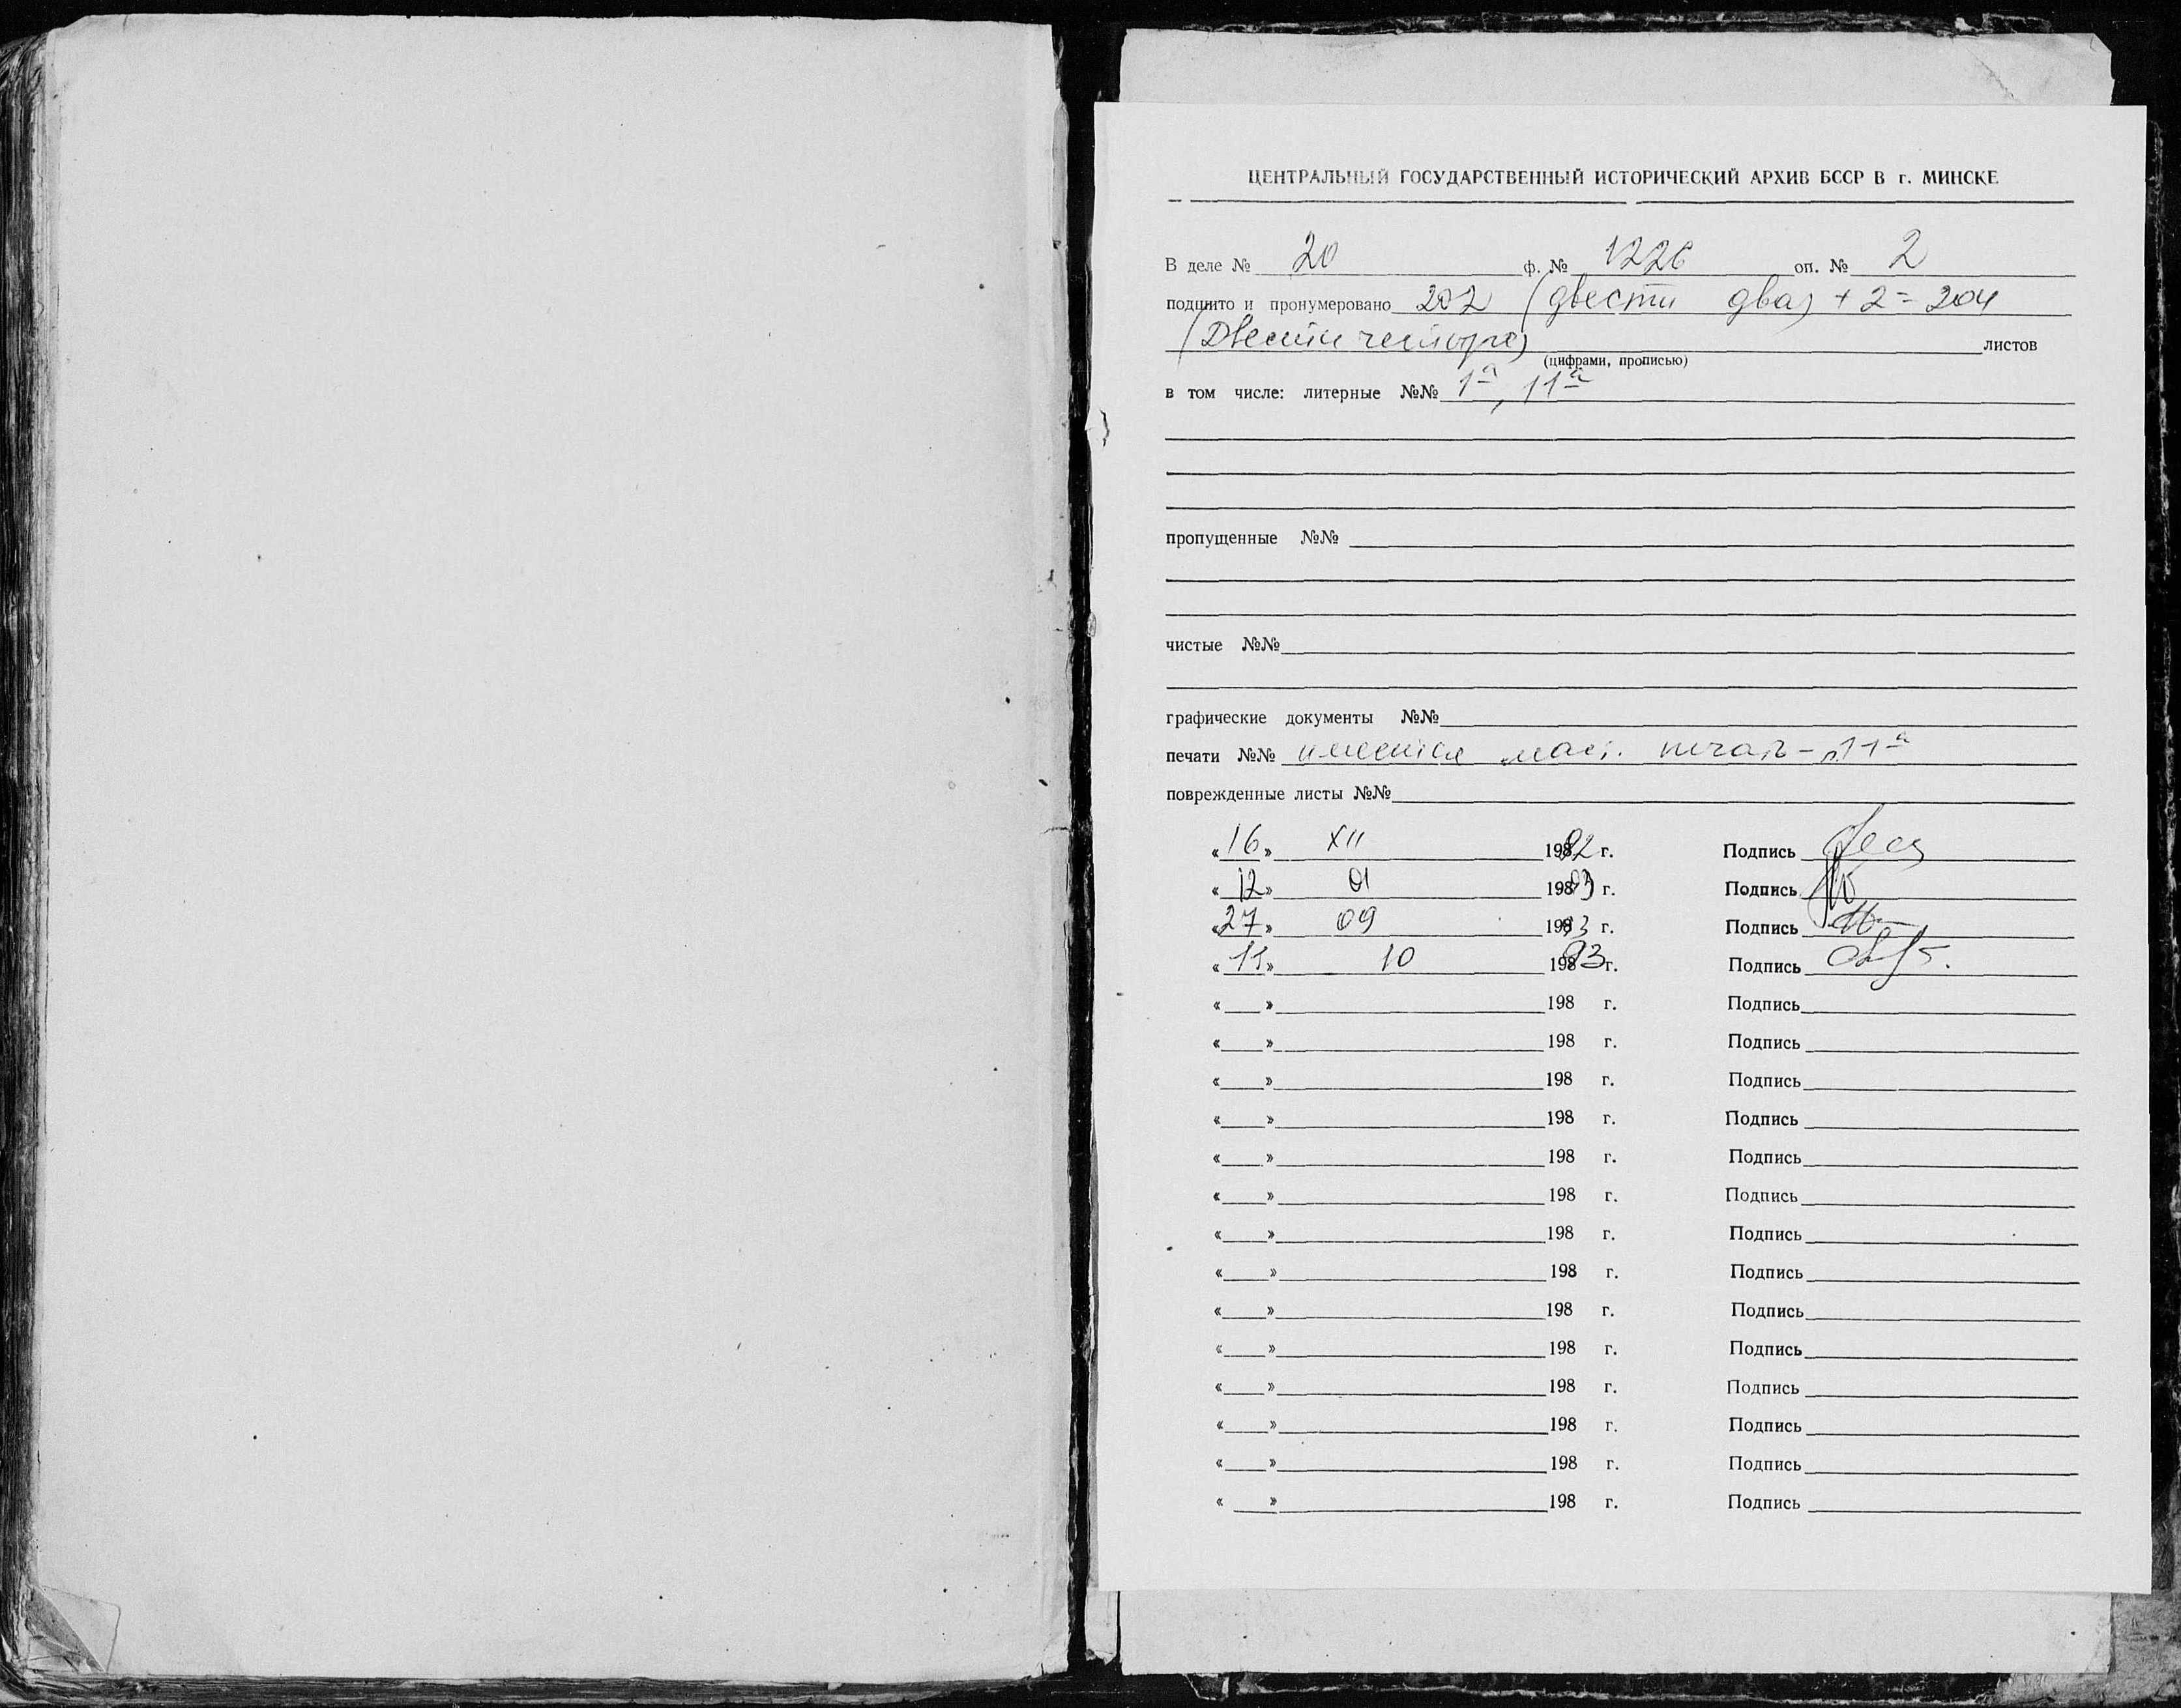 ЦЕНТРАЛЬНЫЙ ГОСУДАРСТВЕННЫЙ ИСТОРИЧЕСКИЙ АРХИВ БССР В г. МИНСКЕ
В деле № 20 ф. № 1226 оп. № 2
подшито и пронумеровано 202 (двести два) + 2 = 204
(Двести четыре) листов
(цифрами, прописью)
в том числе: литерные №№ 1а, 11а
пропущенные №№
чистые №№
графические документы №№
печати №№ имеется маст. печать - л. 11а
поврежденные листы №№
«16» XII 198 92 г. Подпись
«12» 01 198 93 г. Подпись
«27» 09 198 93 г. Подпись
«11» 10 198 93 г. Подпись
« » 198 г. Подпись
« » 198 г. Подпись
« » 198 г. Подпись
« » 198 г. Подпись
« » 198 г. Подпись
« » 198 г. Подпись
« » 198 г. Подпись
« » 198 г. Подпись
« » 198 г. Подпись
« » 198 г. Подпись
« » 198 г. Подпись
« » 198 г. Подпись
« » 198 г. Подпись
« » 198 г. Подпись